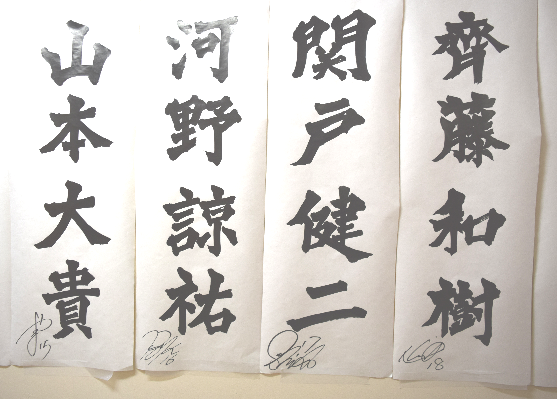 齊藤和樹
18
関戸健二
河野諒祐
山本大貴